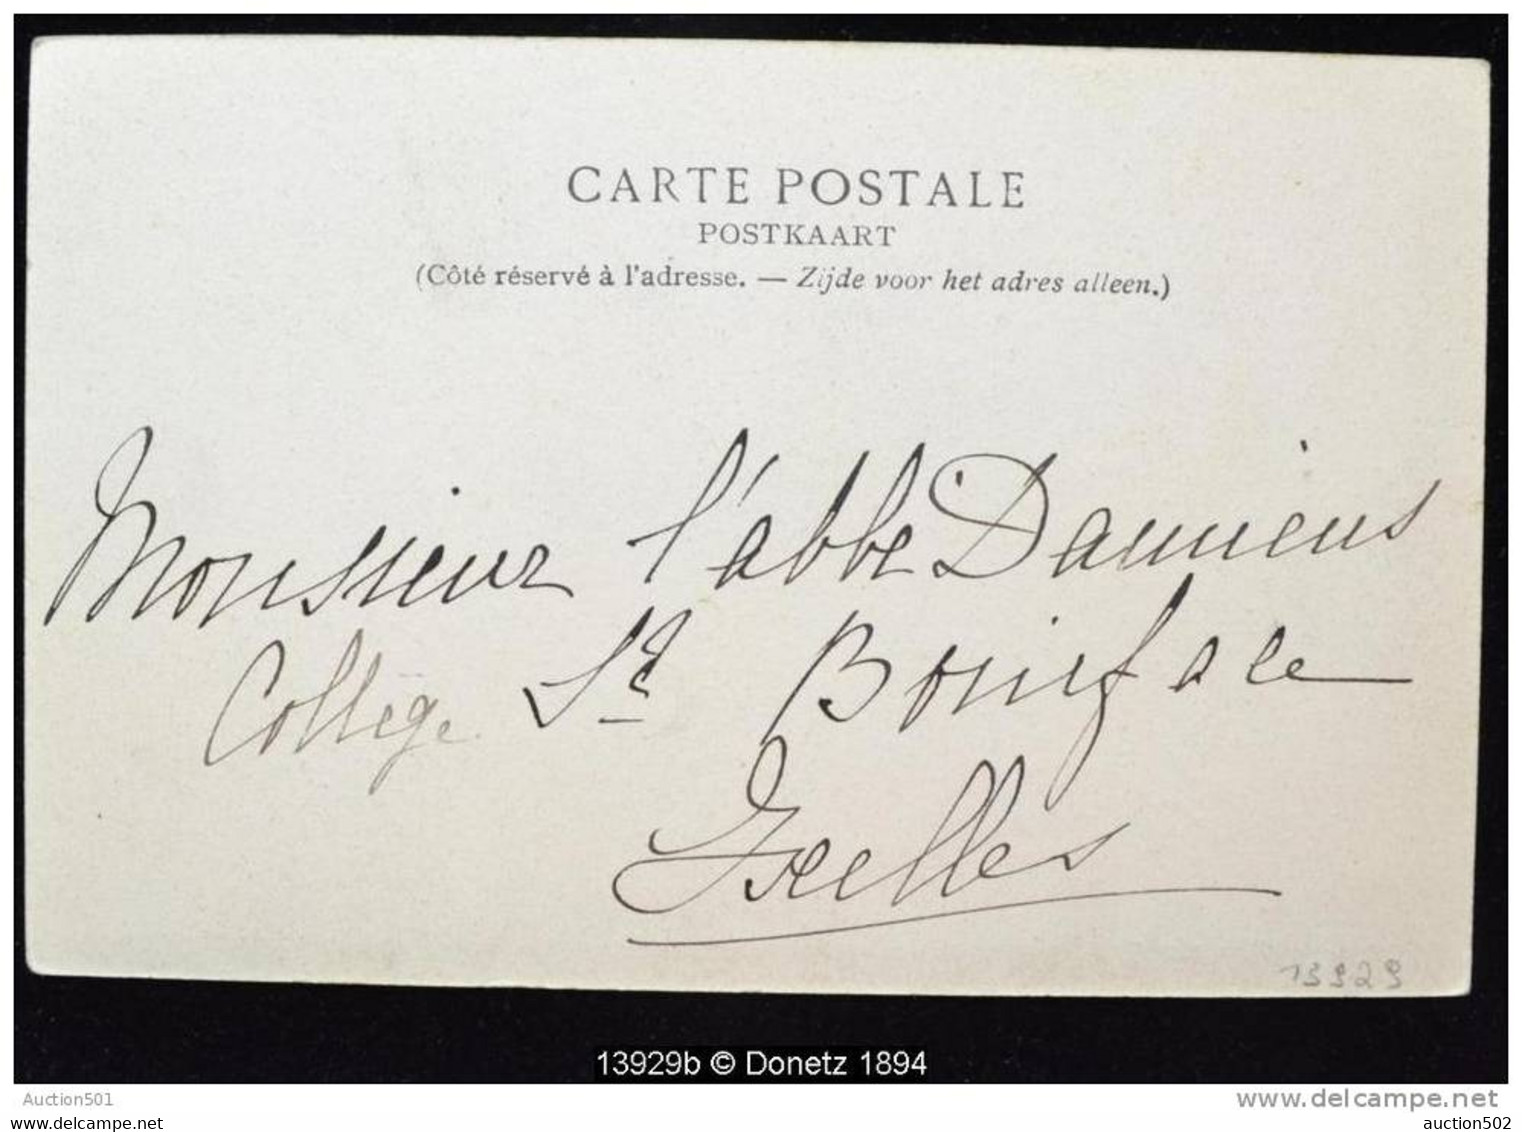 CARTE POSTALE
POSTKAART
(Côté réservé à l'adresse. — Zijde voor het adres alleen.)
Monsieur l'abbé Damiens
Collège St Boniface
Ixelles
13929
13929b © Donetz 1894
Auction501
www.delcampe.net
www.delcampe.net
auction502